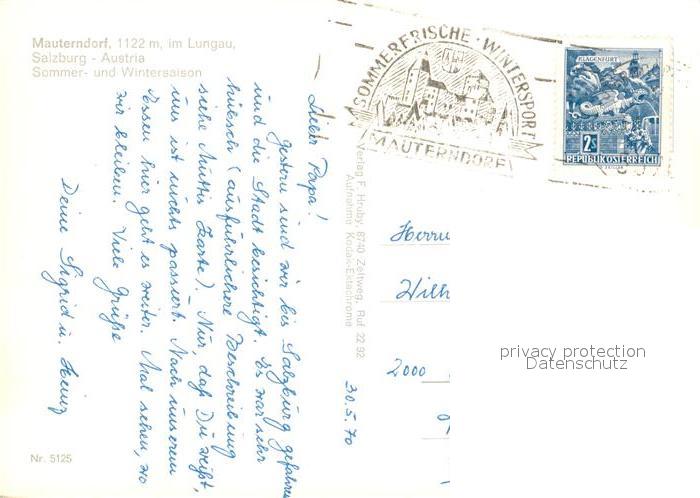 Mauterndorf, 1122 m, im Lungau,
Salzburg - Austria
Sommer- und Wintersaison
SOMMERFRISCHE · WINTERSPORT
MAUTERNDORF
KLAGENFURT
2S
REPUBLIK ÖSTERREICH
Lieber Papa!
Gestern sind wir bis Salzburg gefahren
und die Stadt besichtigt. Es war sehr
hübsch (ausführlichere Beschreibung
siehe Muttis Karte). Nur daß Du weißt,
uns ist nichts passiert. Nach unserem
Essen hier geht es weiter. Mal sehen, wo
wir bleiben. Viele Grüße
Deine Sigrid u. Heinz
30.5.70
Verlag F. Hruby, 8740 Zeltweg, Ruf 22 92
Aufnahme Kodak-Ektachrome
Herrn
Wilh
2000
privacy protection
Datenschutz
Nr. 5125